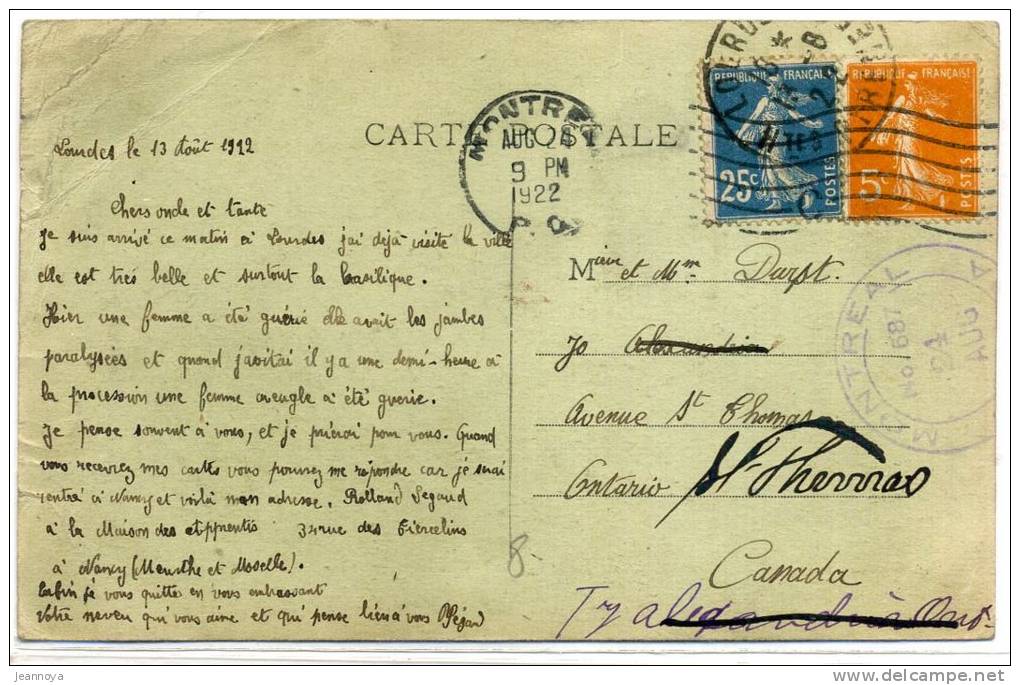 CARTE POSTALE
Lourdes le 13 Août 1922
Chers oncle et tante
Je suis arrivé ce matin à Lourdes j'ai déjà visité la ville
elle est très belle et surtout la basilique.
Hier une femme a été guérie elle avait les jambes
paralysées et quand j'avitai il y a une demi-heure à
la procession une femme aveugle a été guerie.
Je pense souvent à vous, et je prierai pour vous. Quand
vous recevrez mes cartes vous pourrez me répondre car je serai
rentré à Nancy et voilà mon adresse. Rolland Segaud
à la Maison des Apprentis 34 rue des Tiercelins
à Nancy (Meurthe et Moselle).
Enfin je vous quitte en vous embrassant
Votre neveu qui vous aime et qui pense bien à vous
MONTREAL
AUG 24
9 PM
1922
P.Q.
REPUBLIQUE FRANÇAISE
25c
POSTES
REPUBLIQUE FRANÇAISE
5c
POSTES
MONTREAL
No 687
24
AUG
Mieur et Mme Durst.
70 Alexandria
Avenue St Thomas
Ontario St Thomas
Canada
Try alexandria Ont.
8.
jeannoya
delcampe.net